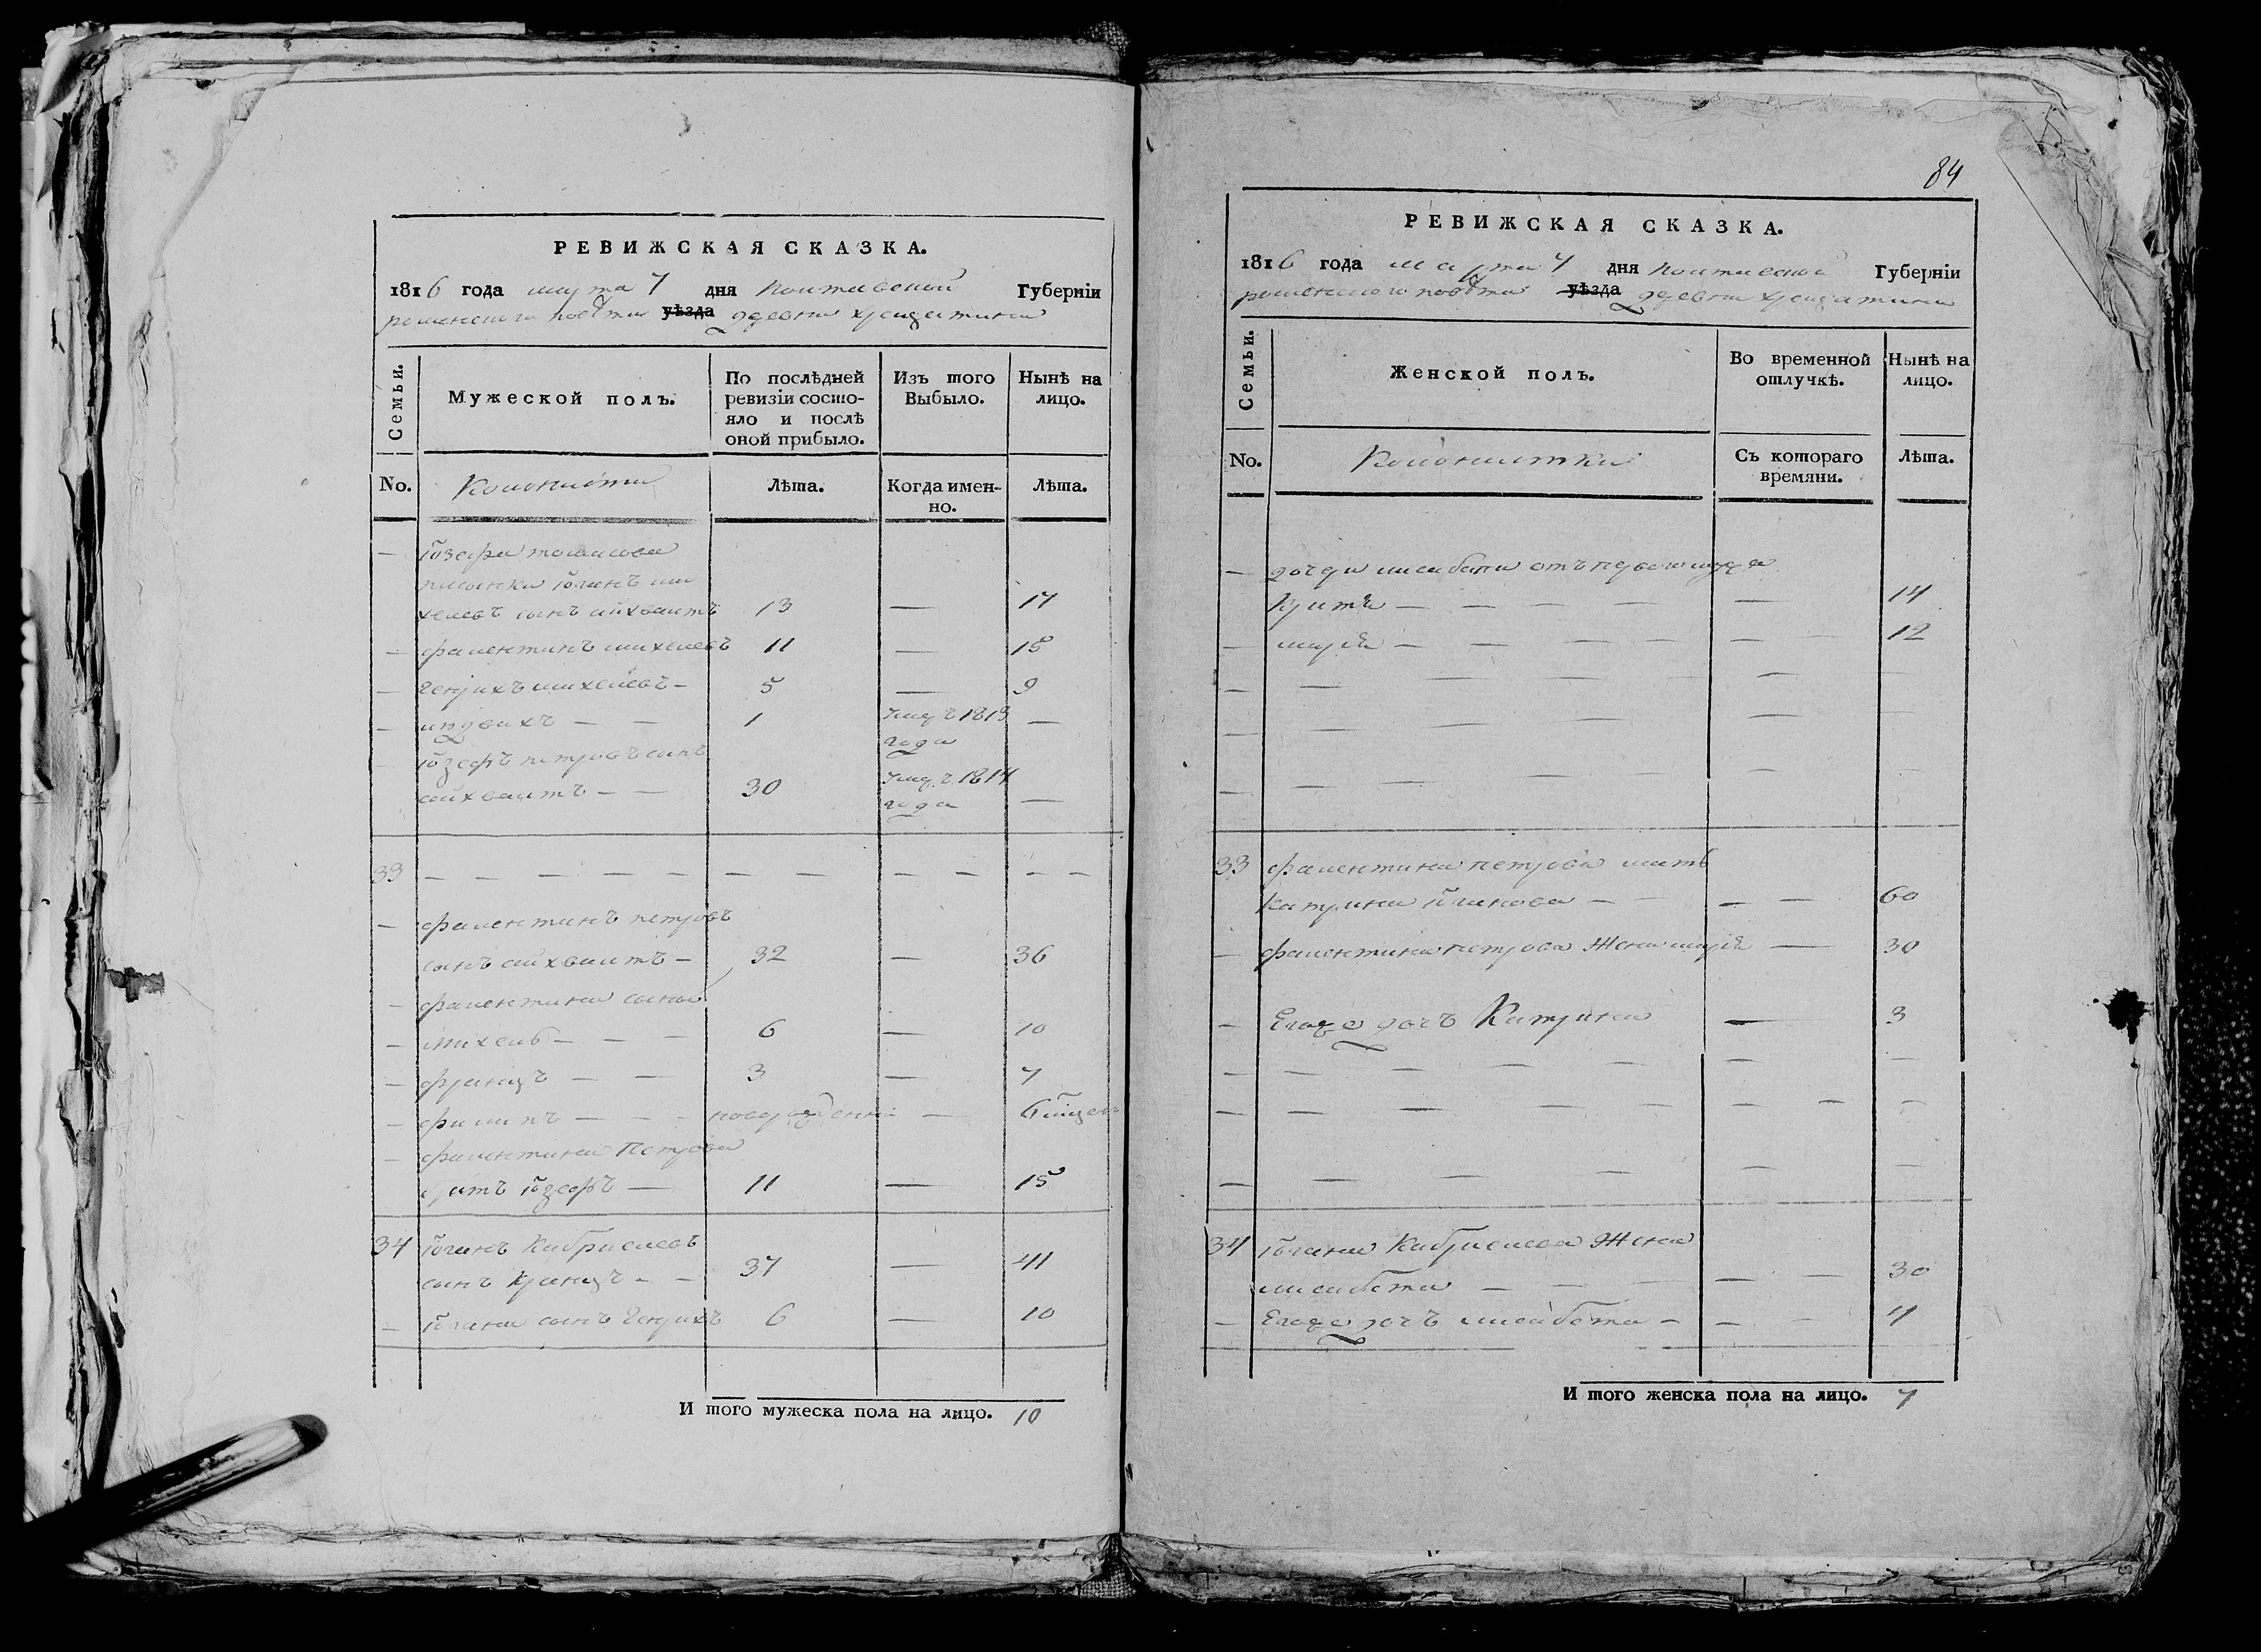 РЕВИЖСКАЯ СКАЗКА.
1816 года марта 7 дня Полтавской Губерніи
роменского повѣта уѣзда деревни
Семьи.
Мужеской полъ.
По послѣдней ревизіи состо-
яло и послѣ
оной прибыло.
Изъ того
Выбыло.
Нынѣ на
лицо.
No.
Колонисты
Лѣта.
Когда имен-
но.
Лѣта.
— Іозефа томасова
пасынки Іоганъ ми
хелевъ сынъ айхвалтъ 13 — 17
— фалентинъ михелевъ 11 — 15
— генрихъ михелевъ — 5 — 9
— людвихъ — — 1 умре 1813 —
года
Іозефъ петровъ сынъ
айхвалтъ — — 30 умре 1814 —
года
33 — — — — — — — — — — — —
— фалентинъ петровъ
сынъ айхвалтъ — 32 — 36
— фалентина сыны
— михель — — — 6 — 10
— францъ — — 3 — 7
— филипъ — — — новорожденный — 6 мѣсецов
— фалентина Петрова
братъ Іозефъ — 11 — 15
34 Іоганъ Кабриелевъ
сынъ кранцъ — — 37 — 41
— Іогана сынъ генрихъ 6 — 10
И того мужеска пола на лицо. 10
84
РЕВИЖСКАЯ СКАЗКА.
1816 года марта 7 дня Полтавской Губерніи
роменского повѣта уѣзда деревни
Семьи.
Женской полъ.
Во временной
отлучкѣ.
Нынѣ на
лицо.
No.
Колонистки
Съ котораго
времяни.
Лѣта.
— дочери лисабети отъ первого мужа
Критя — — — — — 14
— марія — — — — — 12
— — — — — —
— — — — — —
— — — — — —
33 фалентина петрова мать
катрина Іоганова — — — — 60
— фалентина петрова Жена марія — 30
— Егоже дочъ Катрина — 3
— — — — — — —
— — — — — — — —
— — — — — —
34 Іогана Кабриелева Жена
лисабета — — — — — 30
— Егоже дочъ лисабета — — — 4
И того женска пола на лицо. 7